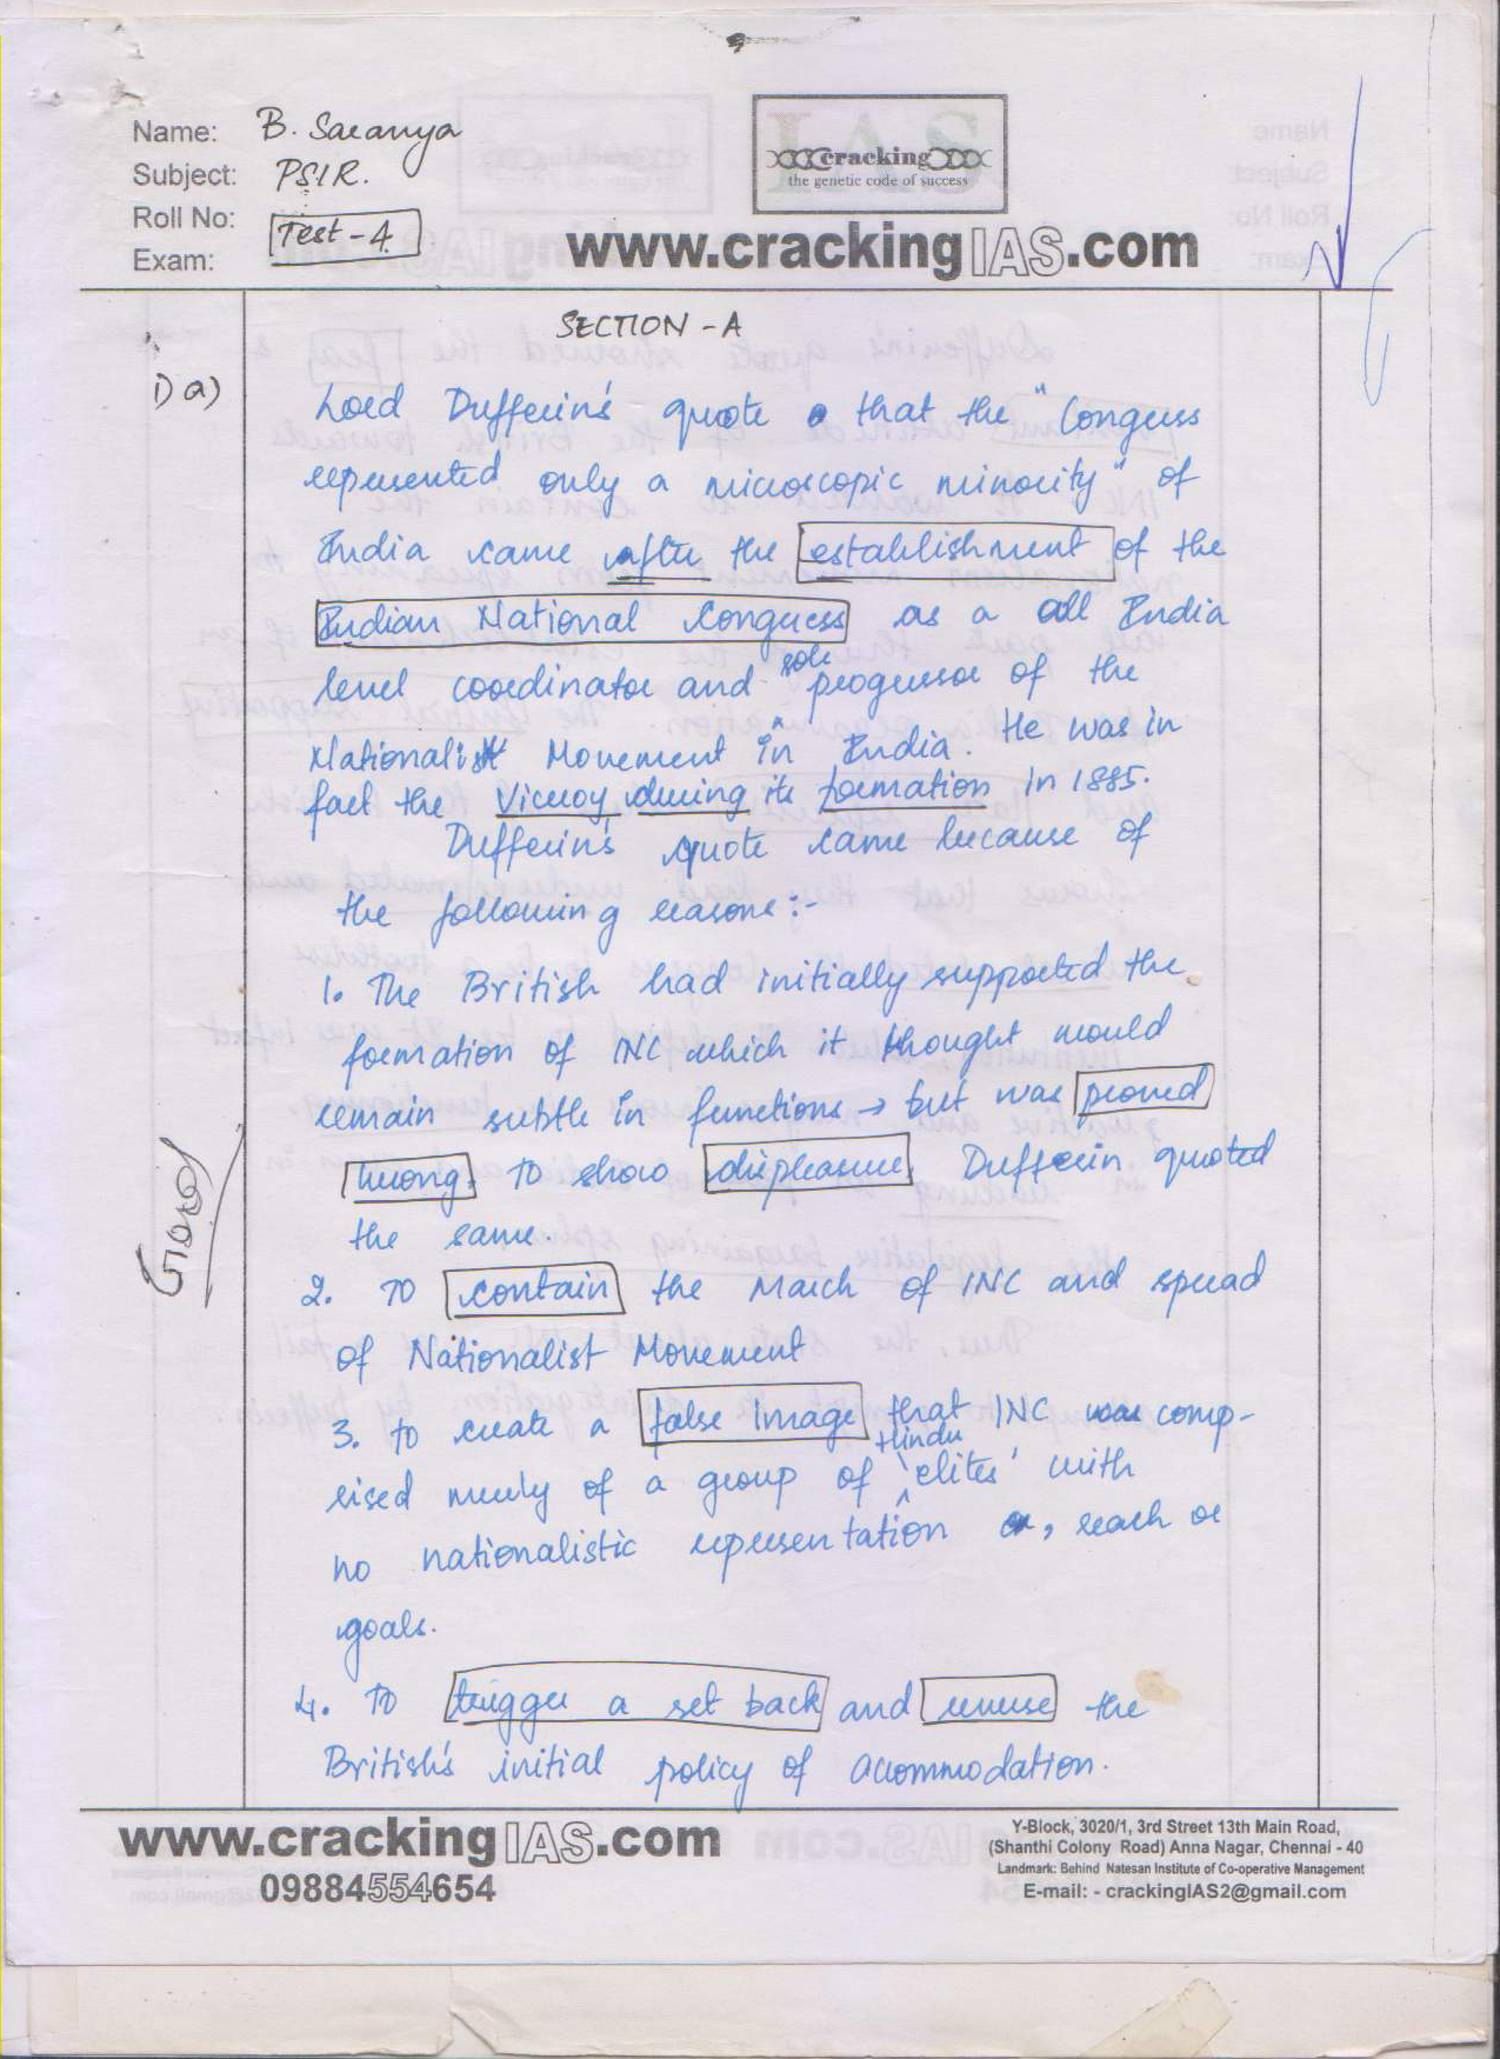 Name: B. Saranya
Subject: PSIR.
Roll No: Test-4
Exam:
cracking
the genetic code of success
www.crackingIAS.com
SECTION - A
1) a)
Lord Dufferin's quote that the "Congress
represented only a microscopic minority" of
India came after the establishment of the
Indian National Congress as a all India
level coordinator and sole progressor of the
Nationalist Movement in India. He was in
fact the Viceroy during its formation in 1885.
Dufferin's quote came because of
the following reasons:-
1. The British had initially supported the
formation of INC which it thought would
remain subtle in functions → but was proved
wrong. To show displeasure, Dufferin quoted
the same.
Good
2. To contain the march of INC and spread
of Nationalist Movement
3. to create a false image that INC was comp-
rised merely of a group of Hindu 'elites' with
no nationalistic representation, reach or
goals.
4. To trigger a set back and reverse the
British's initial policy of accommodation.
www.crackingIAS.com
09884554654
Y-Block, 3020/1, 3rd Street 13th Main Road,
(Shanthi Colony Road) Anna Nagar, Chennai - 40
Landmark: Behind Natesan Institute of Co-operative Management
E-mail: - crackingIAS2@gmail.com